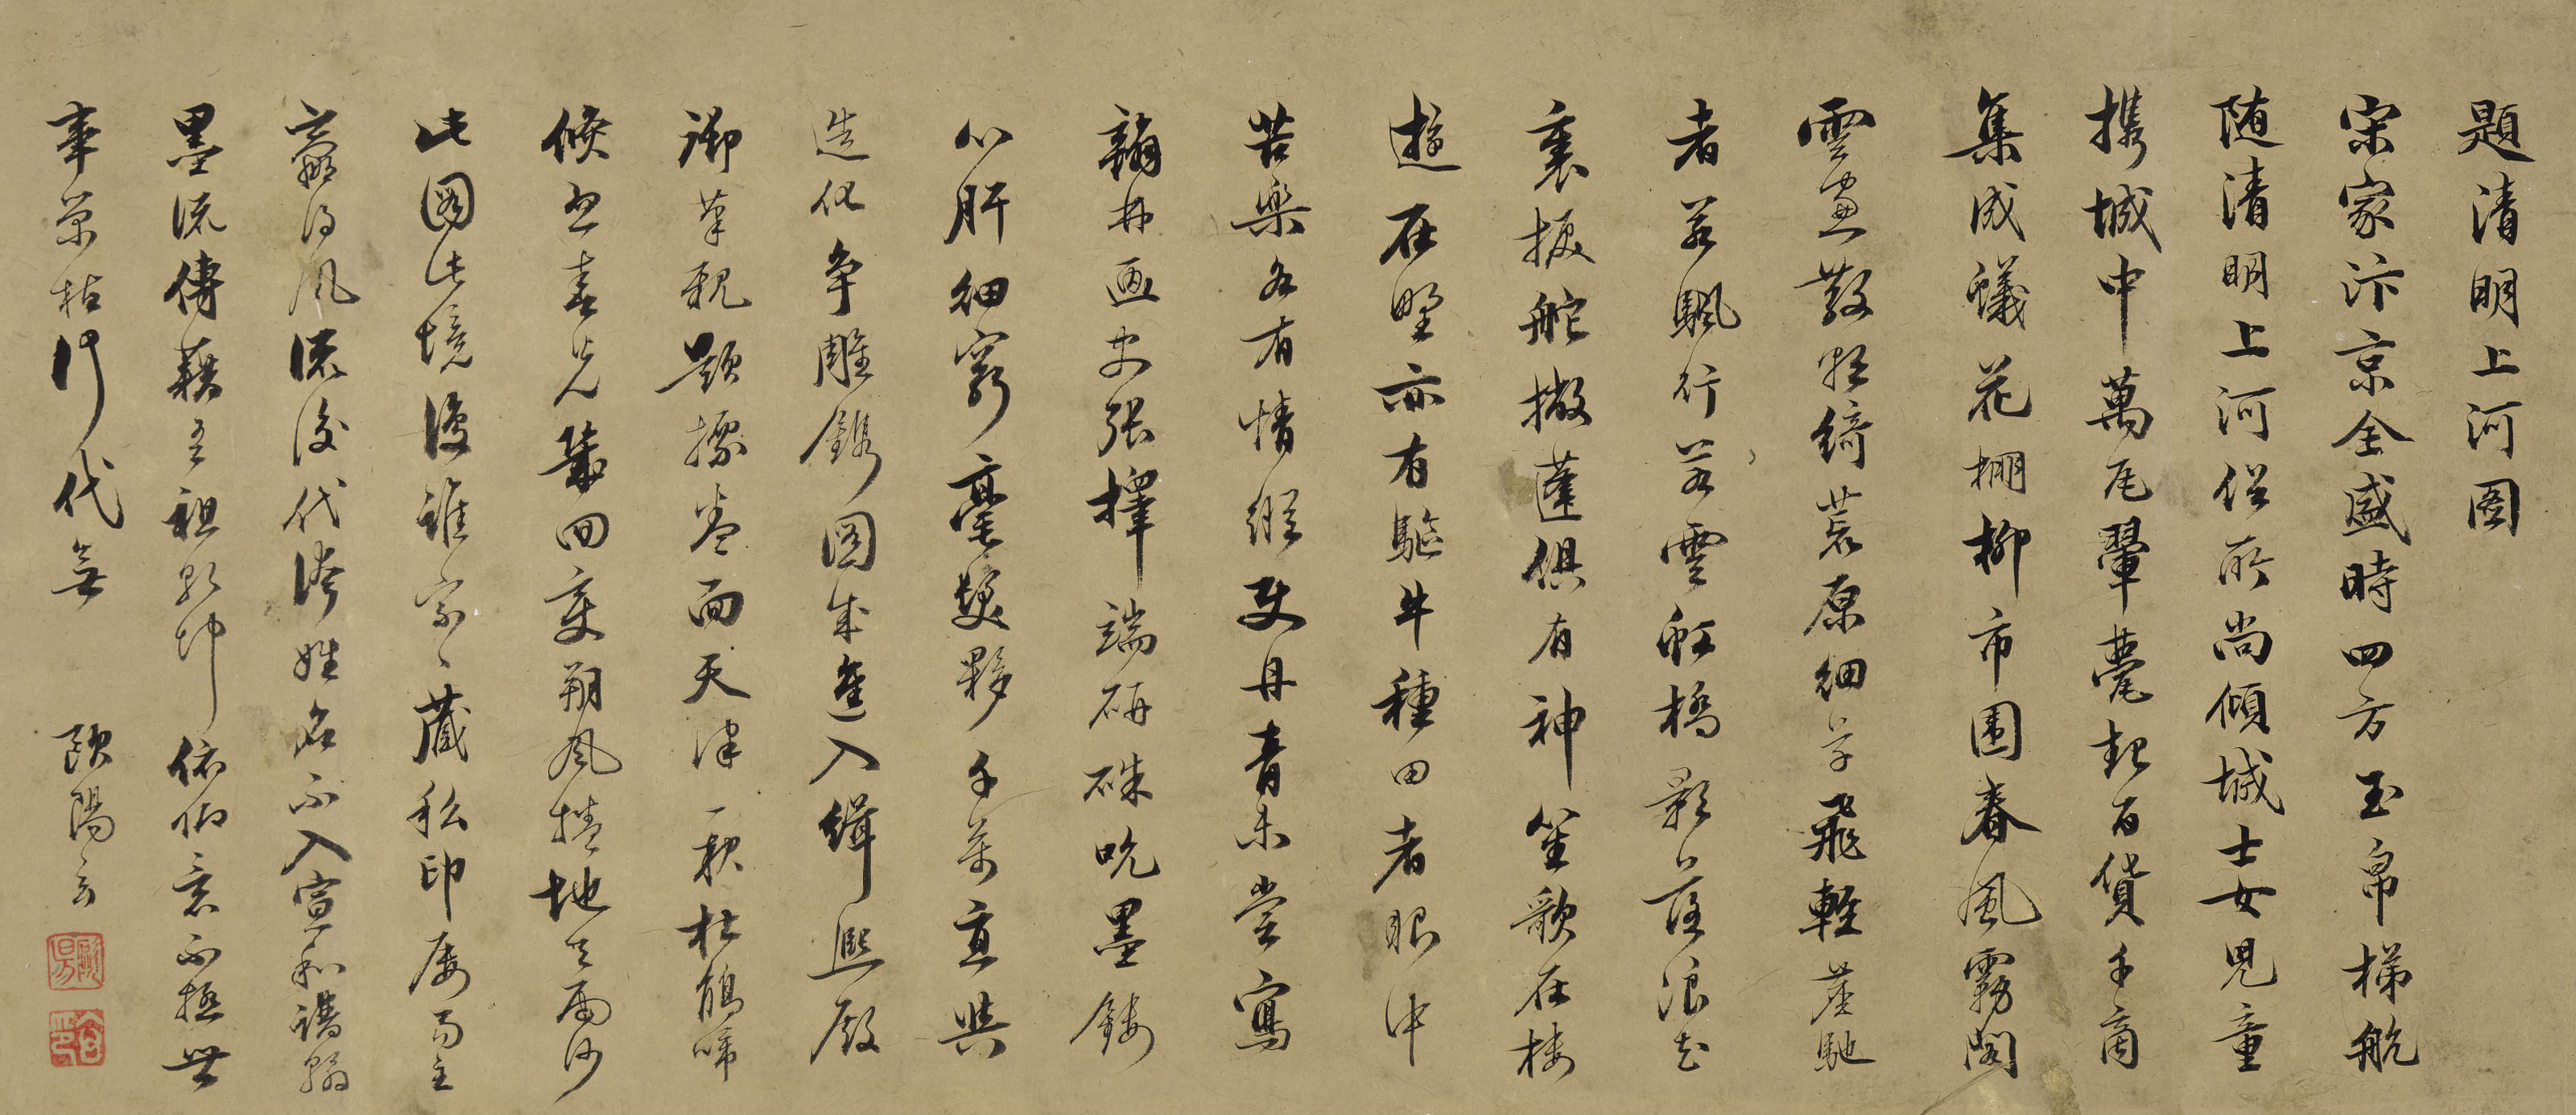 題清明上河圖
宋家汴京全盛時四方玉帛梯航
随清明上河俗所尚傾城士女児童
携城中萬瓦翬甍起百貨千商
集成蟻花棚柳市圍春風霧閣
雲窓散綺荒原細草飛輕塵馳
者若颿行若雲虹橋影落浪花
裏捩舵撇蓬俱有神笙歌在樓
遊在野亦有驅牛種田者眼中
苦樂各有情縱使丹青未嘗寫
翰林画史張擇端研硃吮墨鏤
心肝細窮毫髮夥千萬直與
造化争雕鐫圖成進入緝熙殿
御筆親題標卷面天津一夜杜鵑啼
倏忽春光幾回變朔風捲地天雨沙
此圖此境復誰家家藏私印屢易主
贏得風流後代誇姓名不入宣和譜翰
墨流傳藉吾祖俯仰意不極世
事榮枯何代無 頤陽云